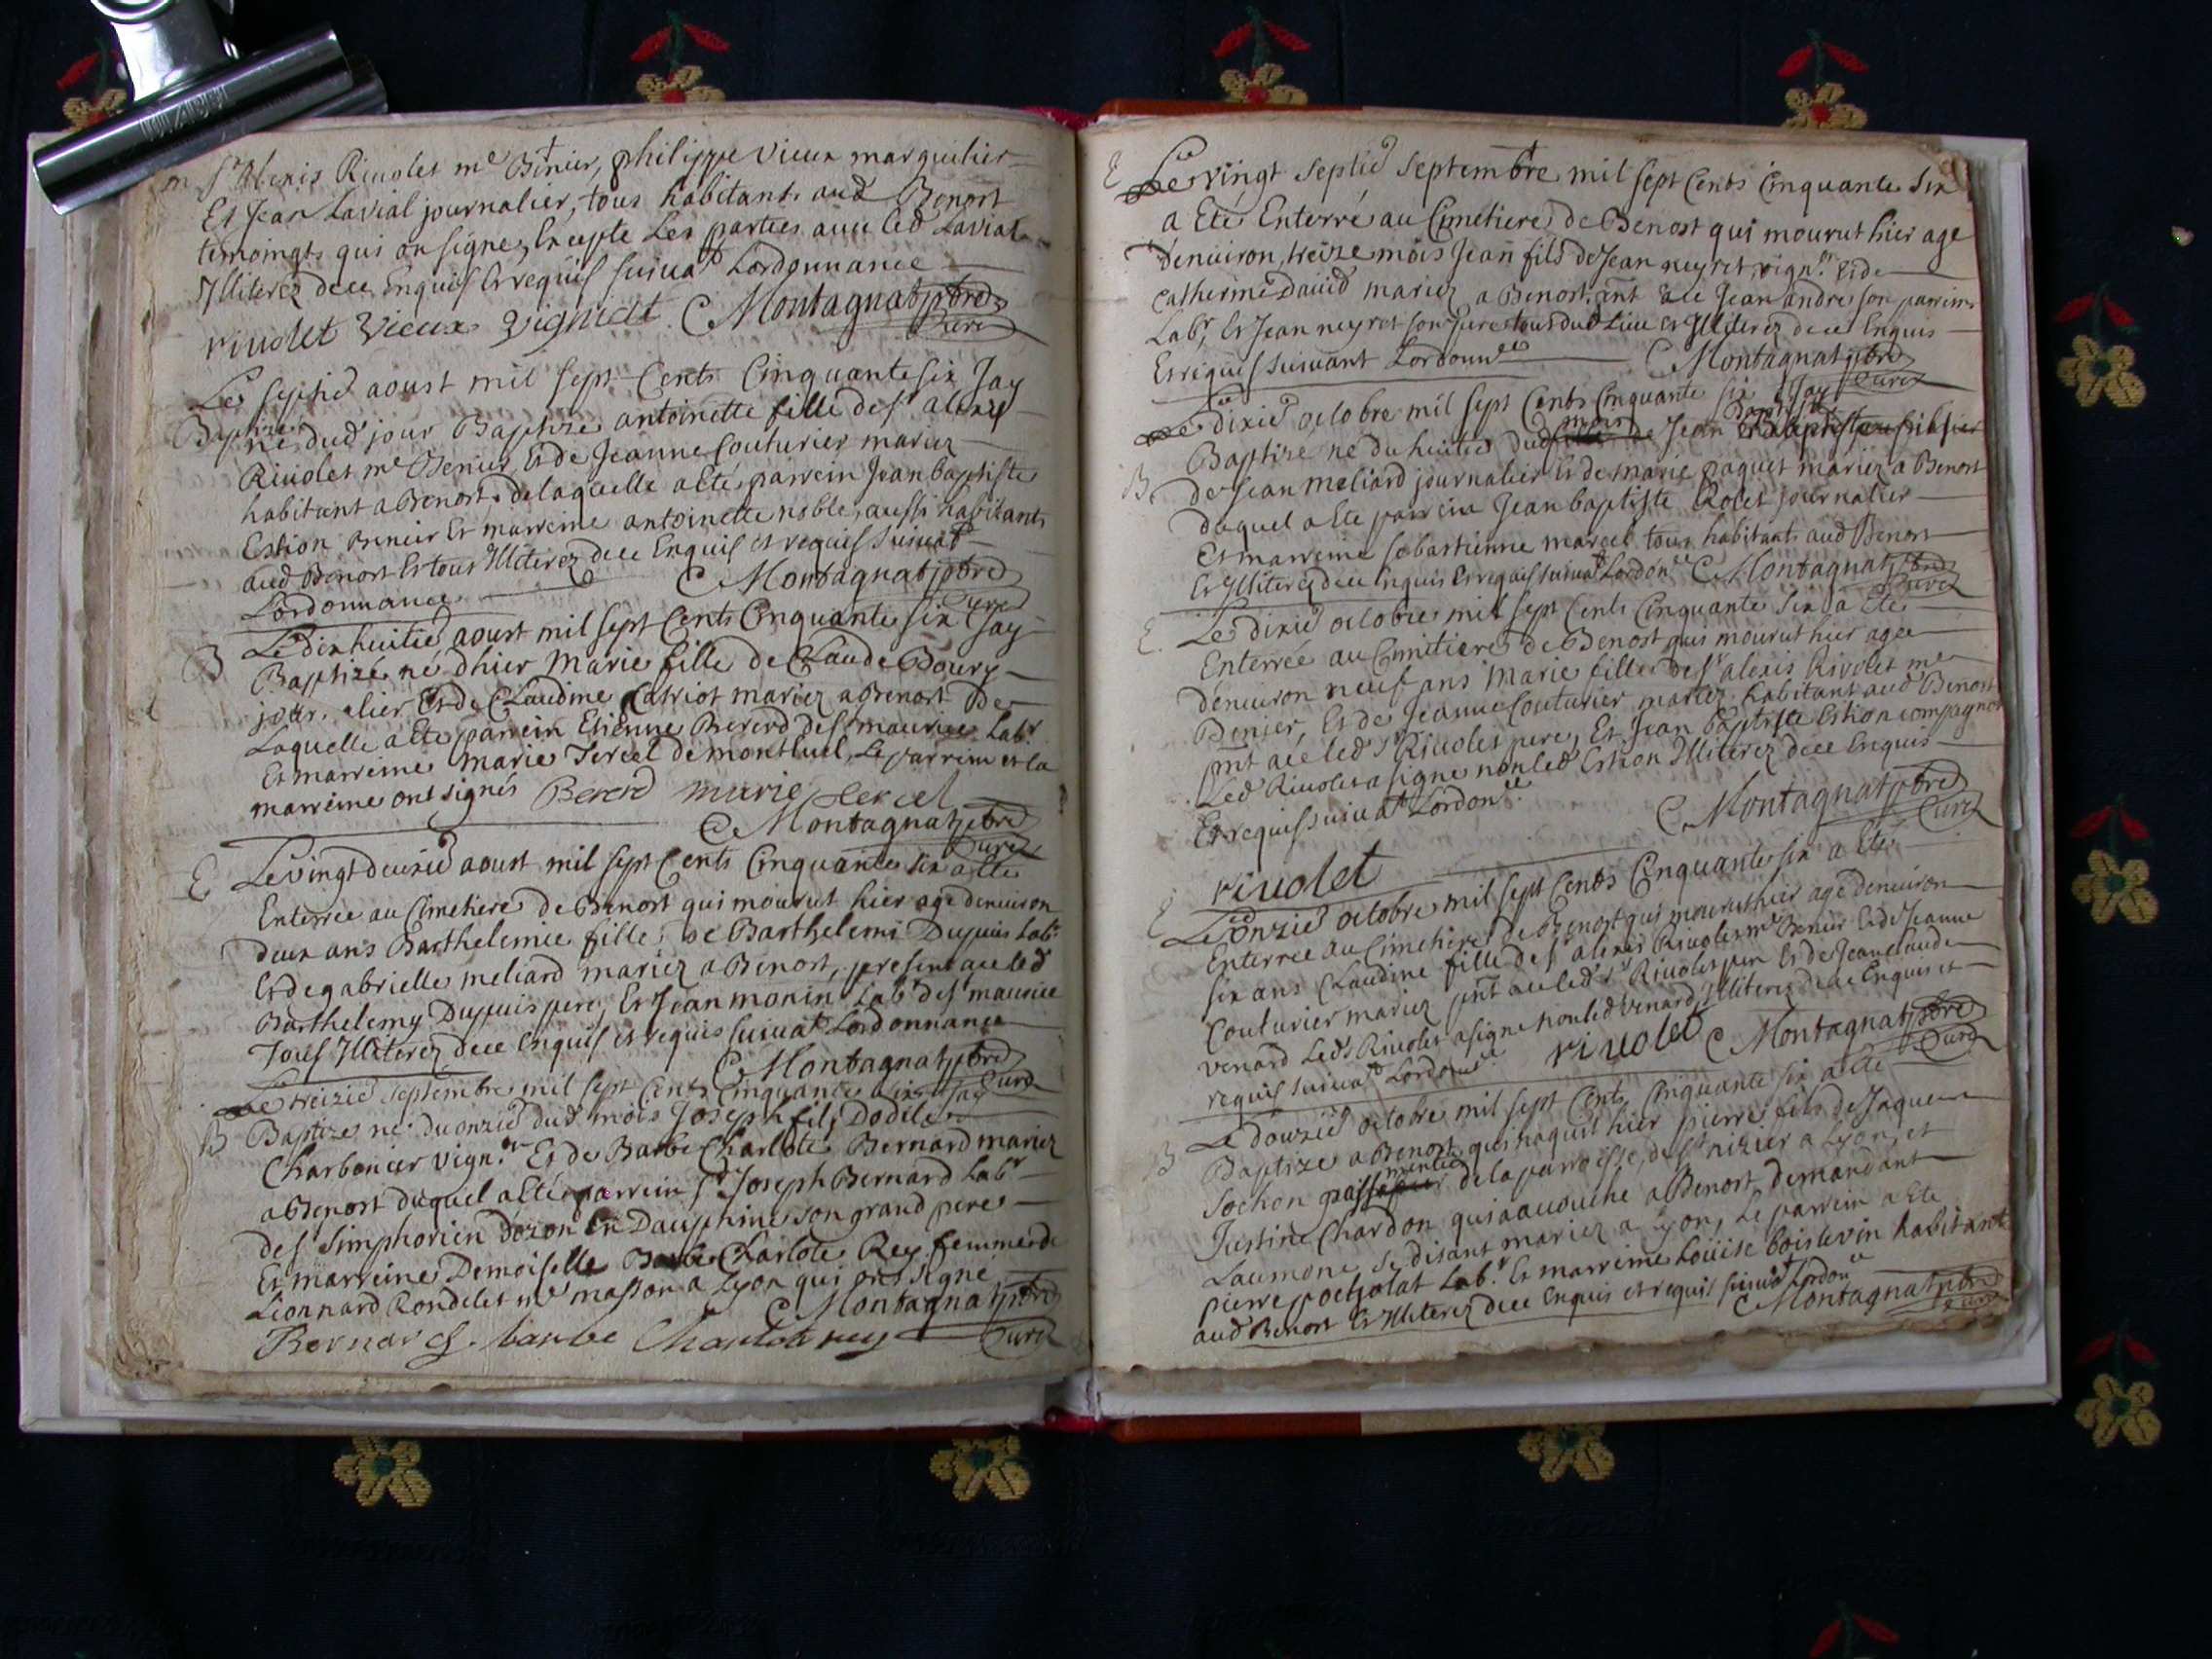 m Sr Alexis Riuolet me Binier, philippe vieux marguilier
Et Jean Lavial journalier, tous habitants aud Benost
temoingts qui on signez Excepte Les parties auec led Lavial
Illiterez de ce Enquis Et requis suiuat Lordonnance
riuolet vieux vignidt C Montagnat pbre
Curé
Le septie aoust mil sept Cents Cinquante six Jay
Baptize né dud jour Baptize antoinette fille de sr alexy
Riuolet me Benier, Et de Jeanne Couturier mariez
habitant a Benost. de laquelle a Eté parrein Jean baptiste
Estion Benier Et marreine antoinette noble, aussi habitants
aud Benost Et tous Illiterez de ce Enquis et requis suiuat
Lordonnance. C Montagnat pbre
Curé
B Le dix huitie aoust mil sept Cents Cinquante six Jay
Baptizé né d'hier Marie fille de Claude Boury
jour. alier Et de Claudine Catriot mariez a Benost De
Laquelle a Ete parrein Etienne Bererd de st maurice Labr
Et marreine Marie Tercel de montluel, Le parrein et la
marreine ont signés Bererd marie tercel
C Montagnat pbre
Curé
E Le vingt deuxie aoust mil sept Cents Cinquante six a Ete
Enterrée au Cimetiere de Benost qui mourut hier age denuiron
deux ans Barthelemie fille de Barthelemi Dupuis Labr
Et de gabrielle meliard mariez a Benost, present ace led
Barthelemy Dupuis pere, Et Jean monin Labr de st maurice
Tous Illiterez de ce Enquis et requis suiuat Lordonnance
C Montagnat pbre
Curé
Le treizie septembre mil sept Cents Cinquante six Jay
B Baptize né du onzie dud mois Joseph fils Dodile
Charboncer vign.on Et de Barbe Charlote Bernard mariez
a Benost duquel a Eté parrein sr Joseph Bernard Labr
de st Simphorien dozon En Dauphine son grand pere
Et marreine Demoiselle Barbe Charlote Rey femme de
Leonnard Rondelet me masson a Lyon qui ont signé
C Montagnat pbre
Bernard. barbe Charlote rey Curé
E Le vingt septie septembre mil sept Cents Cinquante six
a Eté Enterré au Cimetiere de Benost qui mourut hier age
denuiron treize mois Jean fils de Jean neyret, vign.on Et de
Catherine Dauid mariez a Benost. pnt ace Jean andre son parrein
Labr, Et Jean neyret son pere tous dud Lieu et Illiterez de ce Enquis
Et requis suiuant Lordonnce C Montagnat pbre
Curé
Le dixie octobre mil sept Cents Cinquante six Jay
Baptize né du huitie dud mois Jean Baptiste fils
B de Jean meliard journalier Et de marie paquet mariez a Benost
duquel a Ete parrein Jean baptiste Rolet journalier
Et marreine sebastienne marcel tous habitants aud Benost
Et Illiterez de ce Enquis Et requis suiuat Lordonce C Montagnat pbre
Curé
E. Le dixie octobre mil sept Cents Cinquante Six a Ete
Enterrée au Cimitiere de Benost qui mourut hier agée
denuiron neuf ans Marie fille de sr alexis Riuolet me
Benier, Et de Jeanne Couturier mariez habitant aud Benost
pnt ace led sr Riuolet pere, Et Jean baptiste Estion compagnon
Led Riuolet a signe non led Estion Illiterez de ce Enquis
Et requis suiuat Lordonce
C Montagnat pbre
Curé
riuolet
E Le onzie octobre mil sept Cents Cinquante six a Eté
Enterrée au Cimetiere de Benost qui mourut hier age denuiron
six ans Claudine fille de sr alexis Riuolet me Benier Et de Jeanne
Couturier mariez pnt ace led sr Riuolet pere Et de Jean claude
venard Led Riuolet a signe non led venard Illiterez de ce Enquis et
requis suiuat Lordonce riuolet C Montagnat pbre
Curé
Le douzie octobre mil sept Cents Cinquante six a Ete
B Baptize a Benost qui naquit hier pierre fils de Jaque
Sochon mentie de la parroisse de st nizier a Lyon, et
Justine Chardon qui a acouché a Benost demandant
Laumone, se disant mariez a Lyon, Le parrein a Ete
pierre pocholat Labr. Et marreine Loüise boislevin habitant
aud Benost Et Illiterez de ce Enquis et requis suiuat Lordonce
C Montagnat pbre
Curé